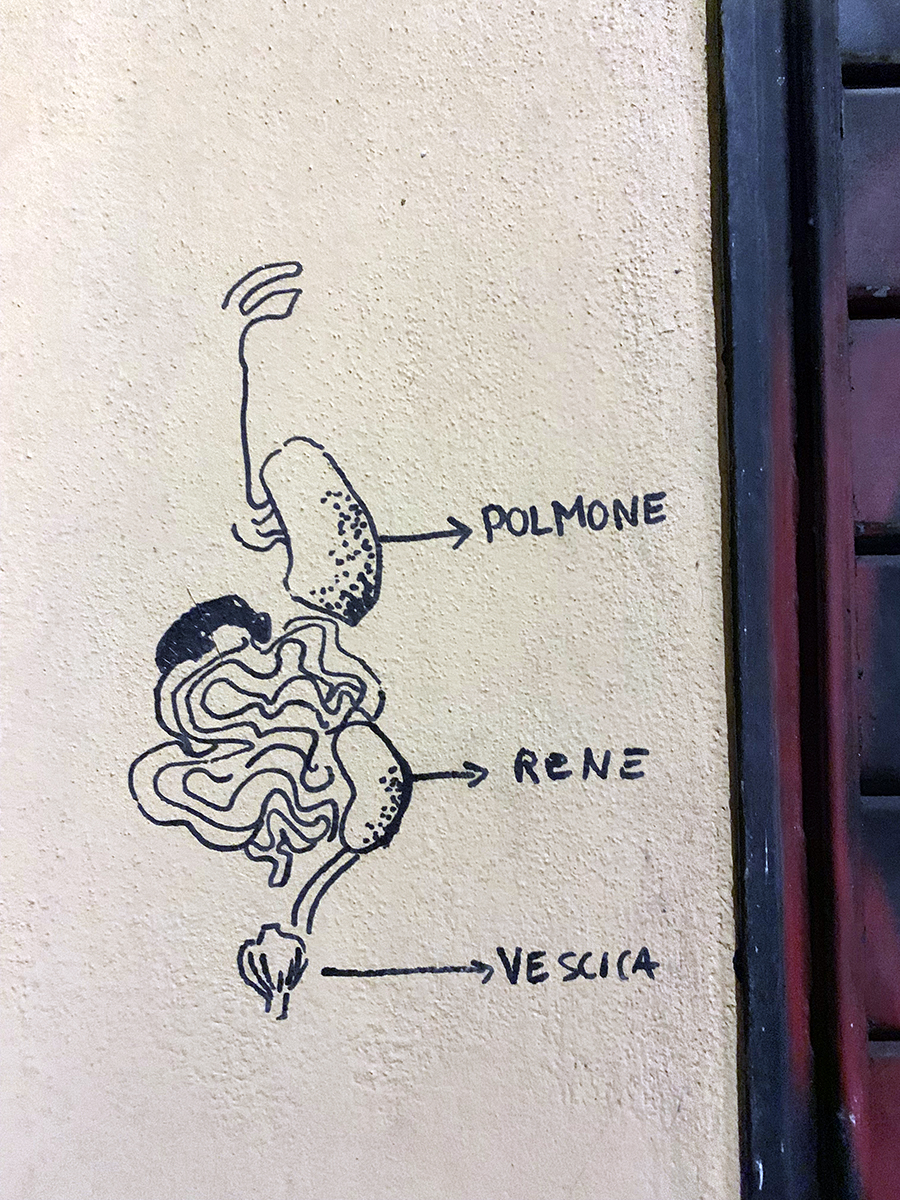 POLMONE
RENE
VESCICA